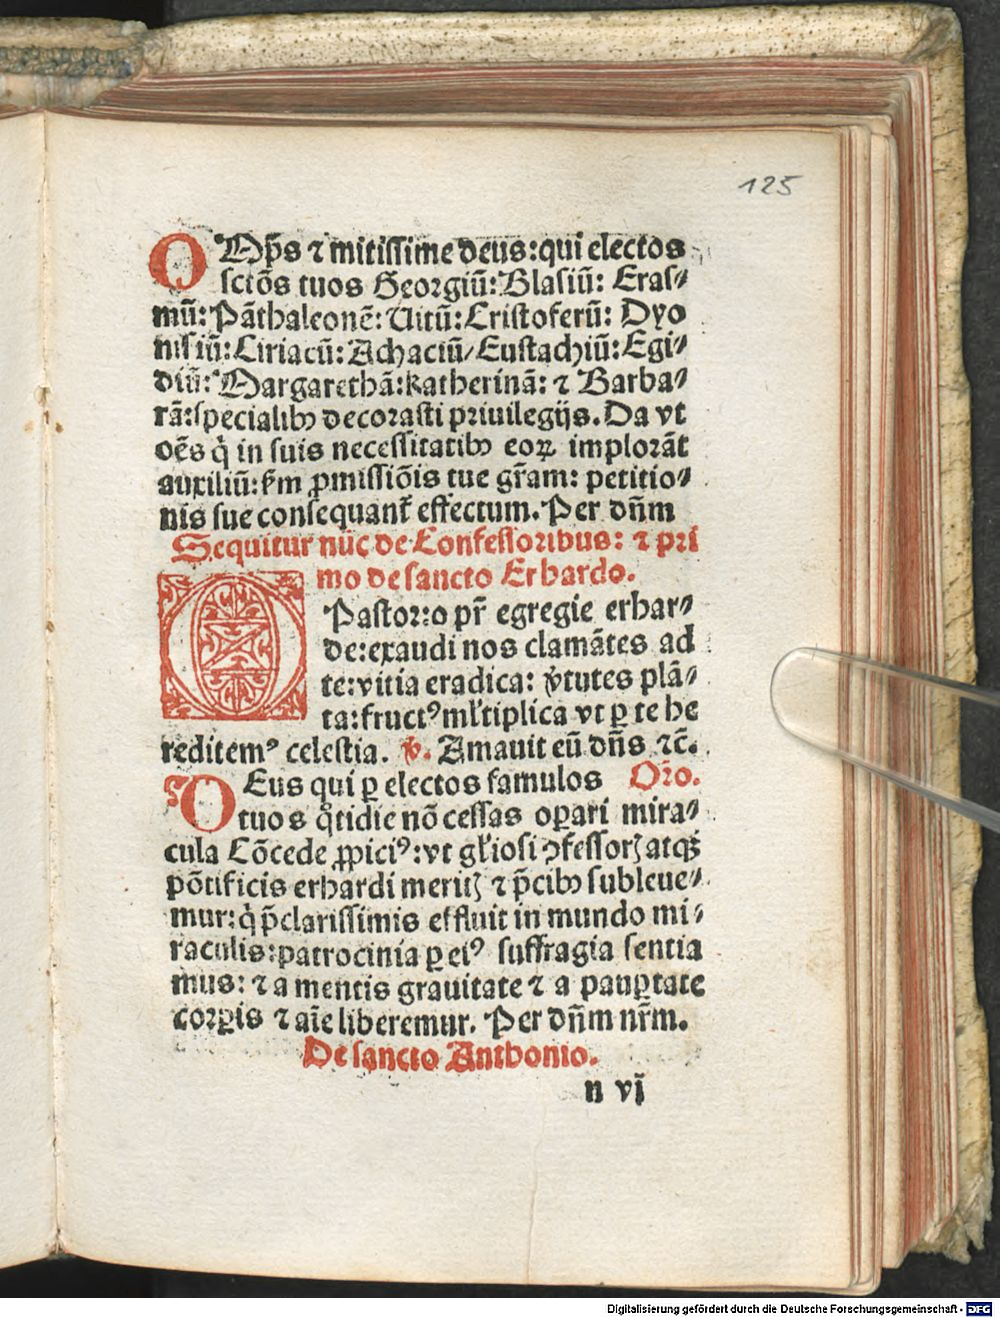 125
OMp̄s ⁊ mitissime deus: qui electos
sctōs tuos Georgiū: Blasiū: Eras⸗
mū: Pāthaleonē: Uitū: Cristoferū: Dyo
nisiū: Ciriacū: Achaciū/ Eustachiū: Egi⸗
diū: Margarethā: katherinā: ⁊ Barba⸗
rā: specialibꝫ decorasti priuilegijs. Da vt
oēs q̇ in suis necessitatibꝫ eoꝝ implorāt
auxiliū: ẜm ꝓmissiōis tue gr̄am: petitio⸗
nis sue consequant᷑ effectum. Per dn̄m
Sequitur nūc de Confessoribus: ⁊ pri
mo de sancto Erhardo.
O Pastor: o pr̄ egregie erhar⸗
de: exaudi nos clamātes ad
te: vitia eradica: v̓tutes plā⸗
ta: fructꝰ ml̓tiplica vt ꝑ te he
reditemꝰ celestia. ℣. Amauit eū dn̄s ⁊c̄.
DEus qui ꝑ electos famulos Or̄o.
tuos q̄tidie nō cessas oꝑari mira⸗
cula Cōcede ꝓpiciꝰ: vt gl̓iosi ꝯfessorꝭ atqꝫ
pōtificis erhardi meritꝭ ⁊ p̄cibꝫ subleue⸗
mur: q̇ p̄clarissimis effluit in mundo mi⸗
raculis: patrocinia ꝑ eiꝰ suffragia sentia
mus: ⁊ a mentis grauitate ⁊ a pauꝑtate
corꝑis ⁊ aīe liberemur. Per dn̄m nr̄m.
De sancto Anthonio.
n vj
Digitalisierung gefördert durch die Deutsche Forschungsgemeinschaft - DFG